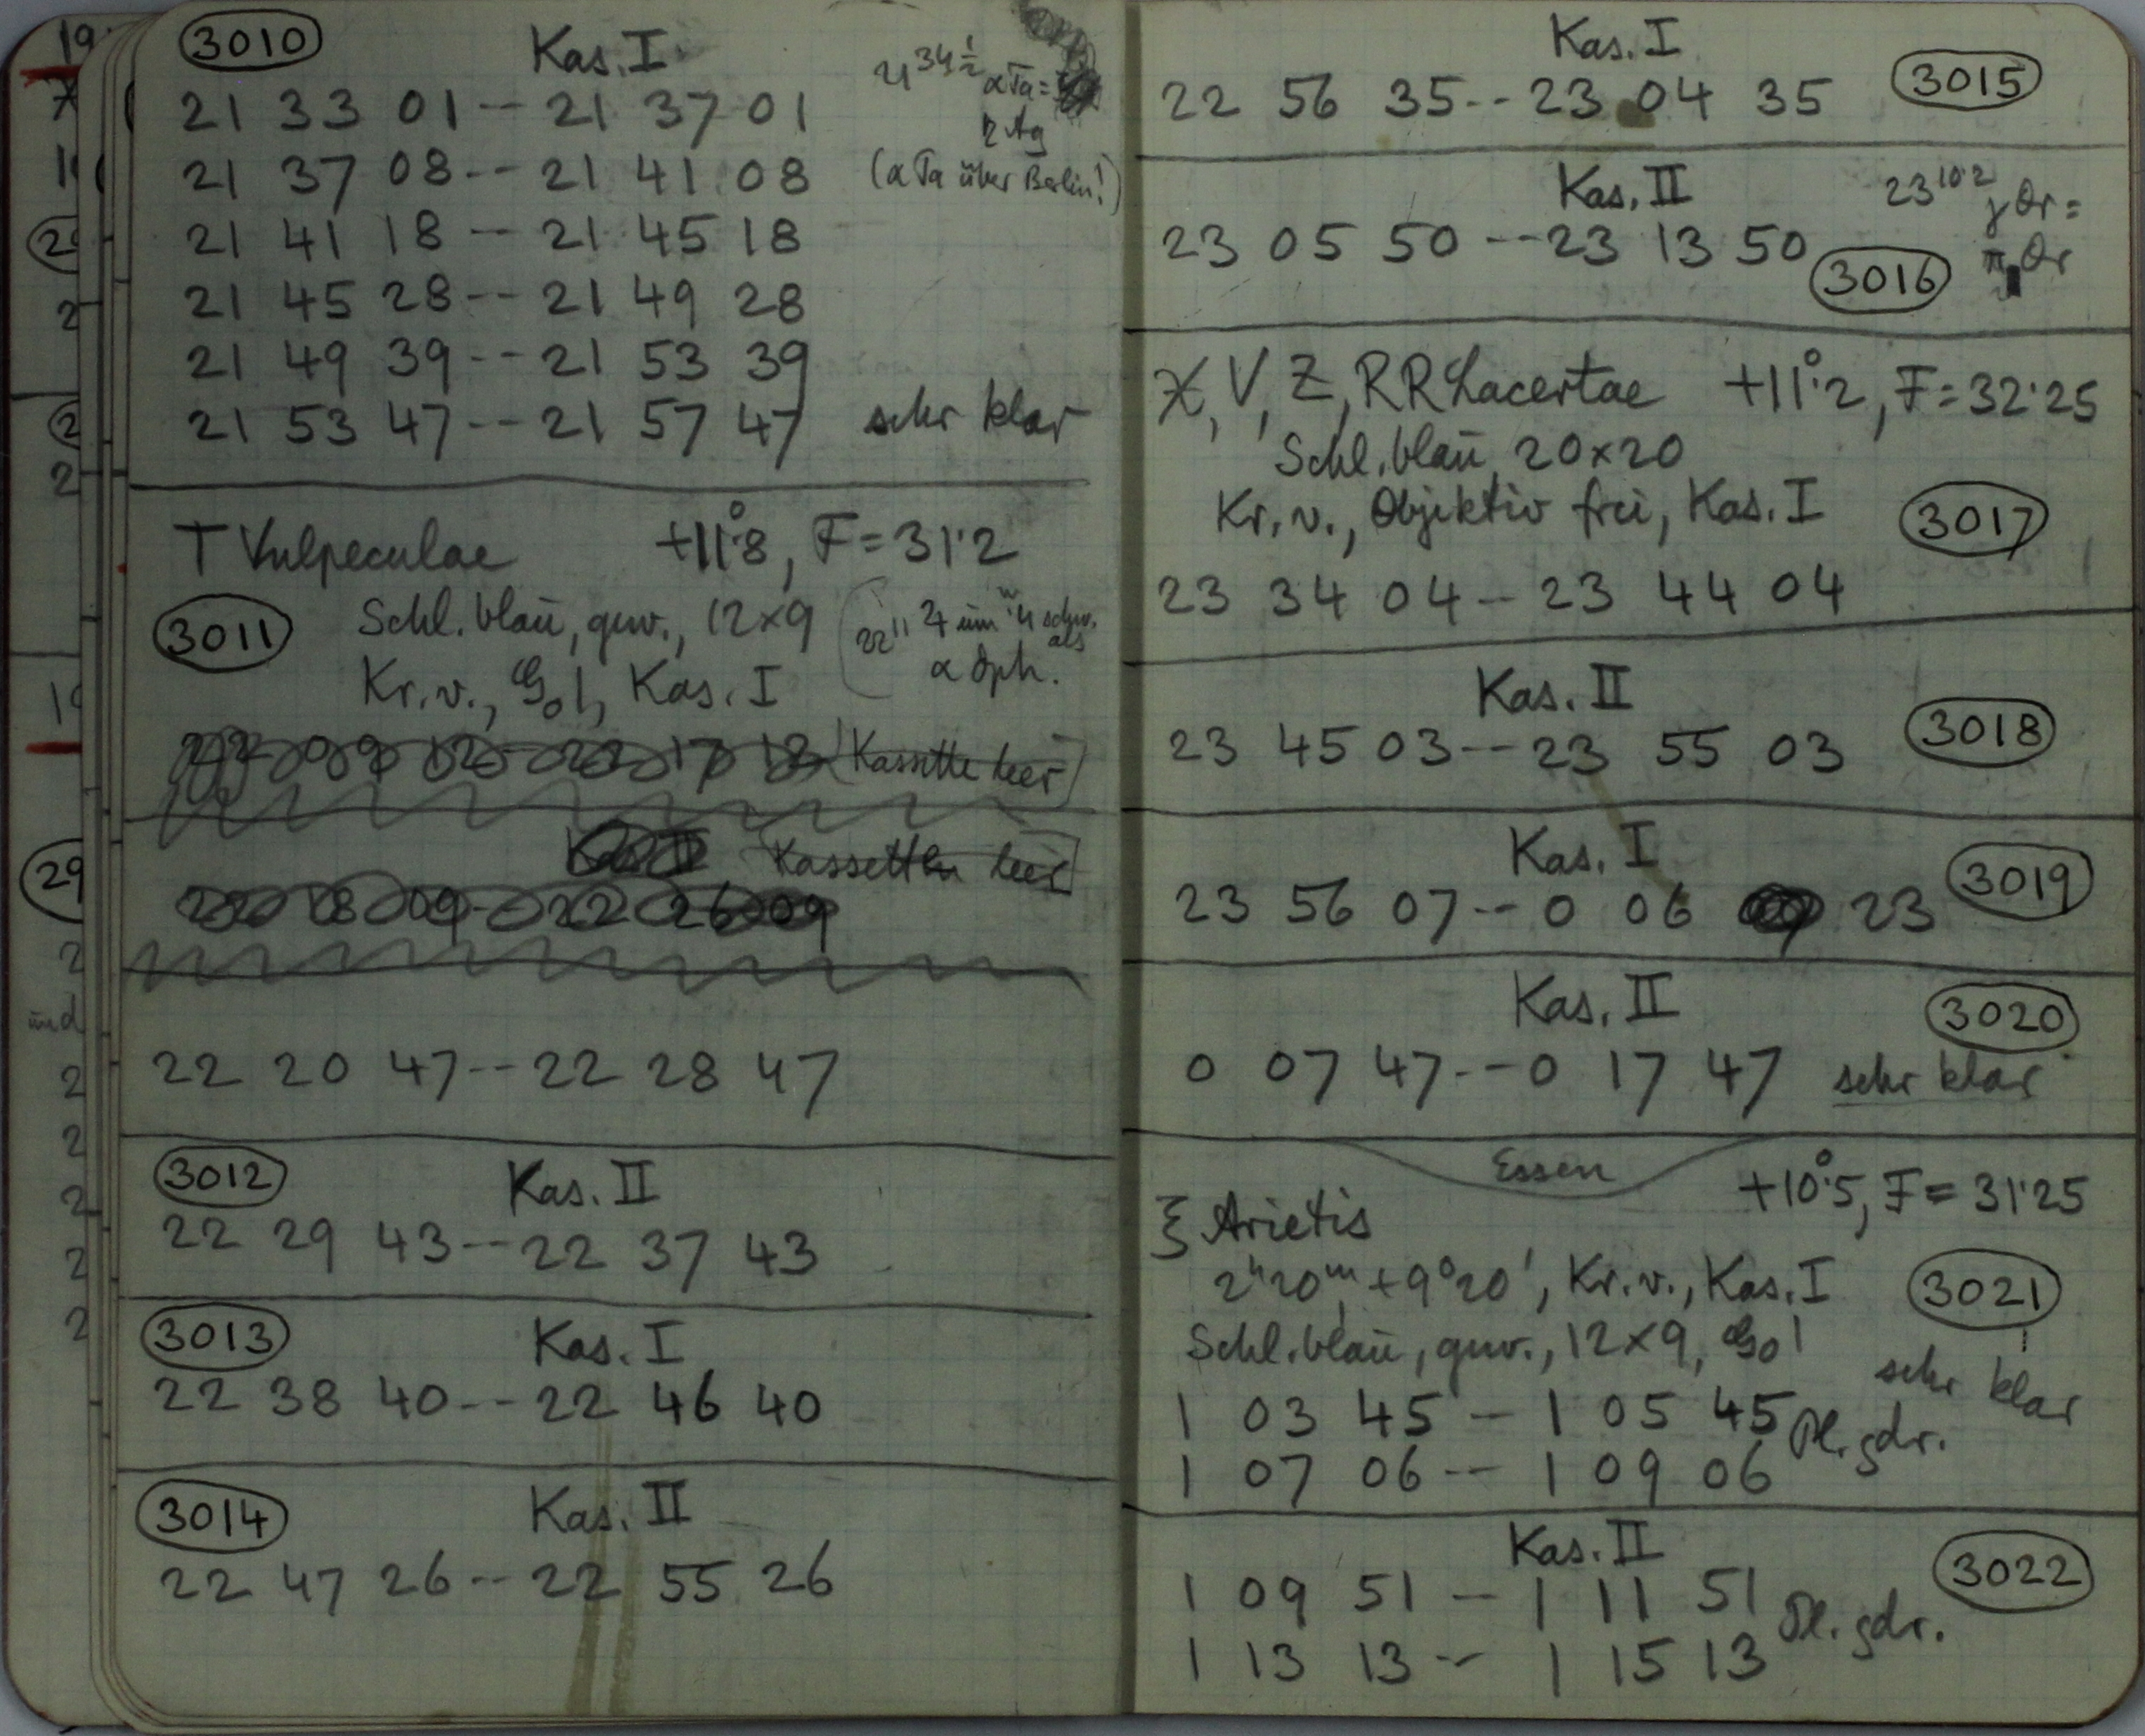 3010
Kas. I
21 33 01 -- 21 37 01
21 34 1/2 α Ta =
η Ag
21 37 08 -- 21 41 08 (α Ta über Berlin!)
21 41 18 -- 21 45 18
21 45 28 -- 21 49 28
21 49 39 -- 21 53 39
21 53 47 -- 21 57 47 sehr klar
T Vulpeculae +11°.8, F = 31.2
3011 Schl. blau, guv., 12×9
Kr. v., Go!, Kas. I
α Oph.
22 09 12 - 22 17 12 (Kassette leer)
Kas. II Kassette leer
22 18 09 - 22 26 09
22 20 47 -- 22 28 47
3012 Kas. II
22 29 43 -- 22 37 43
3013 Kas. I
22 38 40 -- 22 46 40
3014 Kas. II
22 47 26 -- 22 55 26
Kas. I
22 56 35 -- 23 04 35 3015
Kas. II 23 10.2 γ Or =
π Or
23 05 50 -- 23 13 50 3016
X, V, Z, RR Lacertae +11°.2, F = 32.25
Schl. blau, 20×20
Kr. v., Objektiv frei, Kas. I 3017
23 34 04 - 23 44 04
Kas. II
23 45 03 -- 23 55 03 3018
Kas. I
23 56 07 -- 0 06 23 3019
Kas. II 3020
0 07 47 -- 0 17 47 sehr klar
Essen
+10°.5, F = 31.25
ξ Arietis
2h20m, +9°20', Kr. v., Kas. I 3021
Schl. blau, guv., 12×9, Go!
sehr klar
1 03 45 - 1 05 45 Pl. gdr.
1 07 06 -- 1 09 06
Kas. II 3022
1 09 51 - 1 11 51 Pl. gdr.
1 13 13 -- 1 15 13